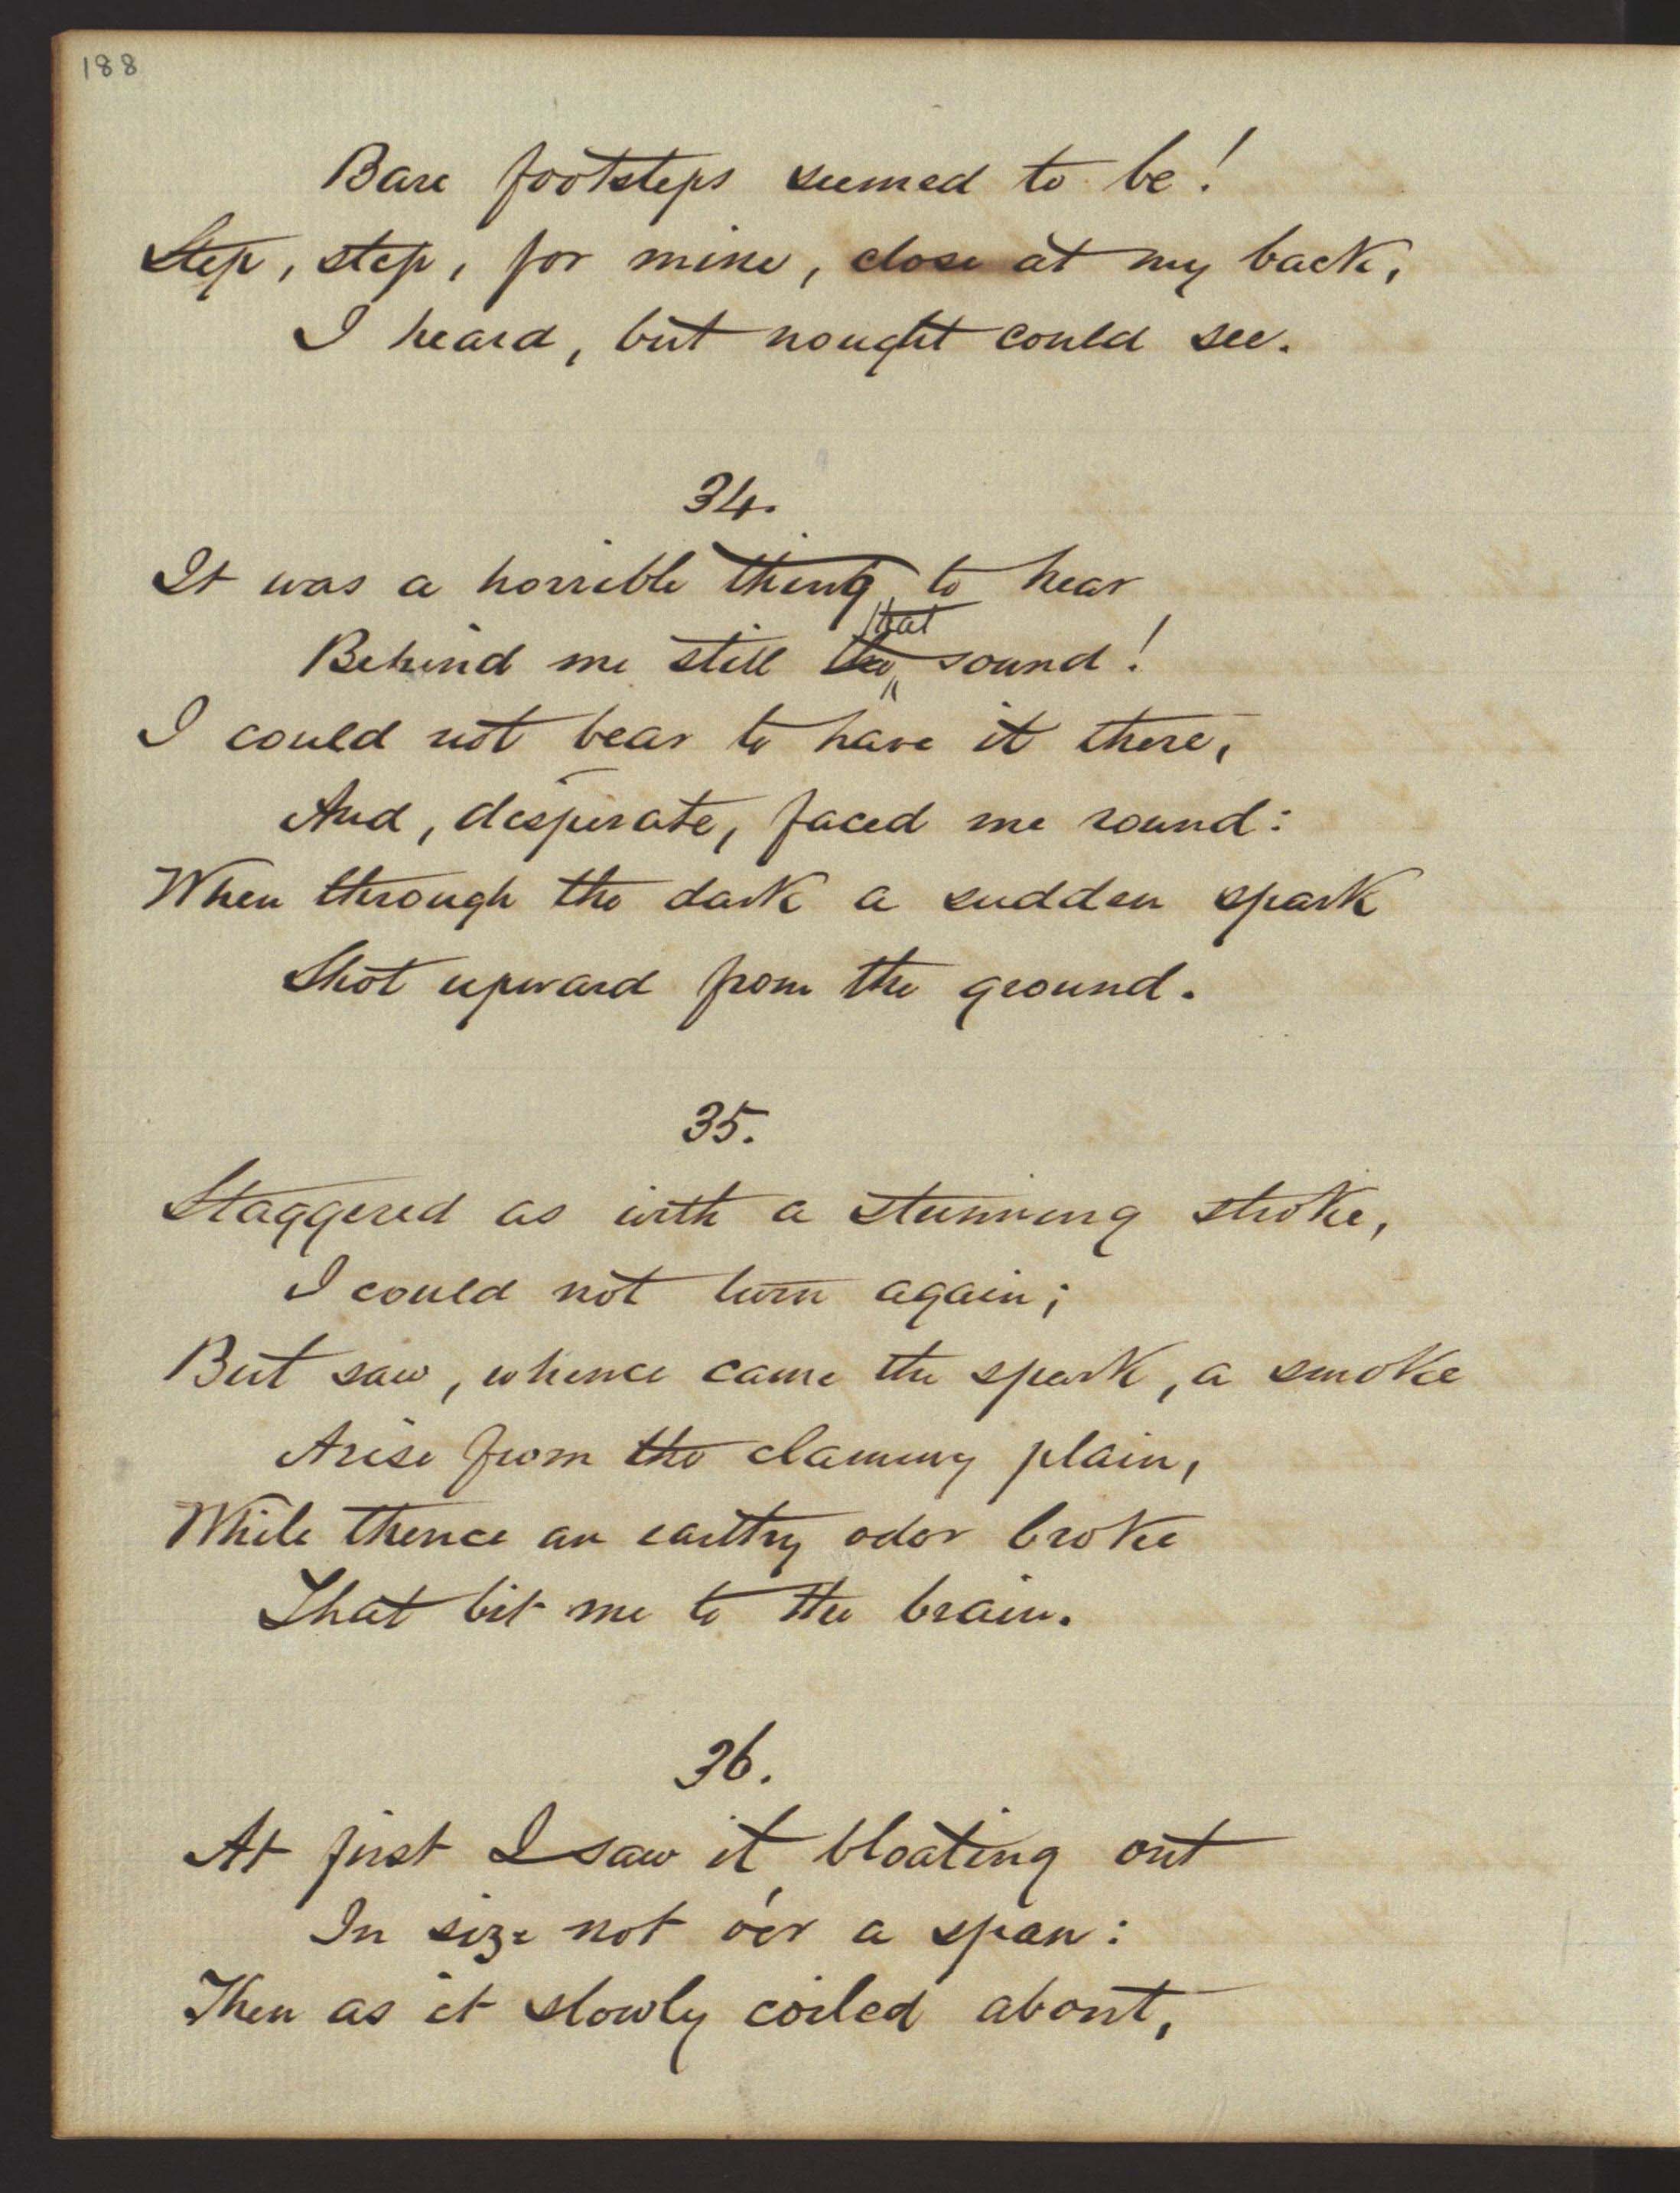 188
Bare footsteps seemed to be!
Step, step, for mine, close at my back,
I heard, but nought could see.
34.
It was a horrible thing to hear
that
Behind me still the sound!
I could not bear to have it there,
And, desperate, faced me round:
When through the dark a sudden spark
Shot upward from the ground.
35.
Staggered as with a stunning stroke,
I could not turn again;
But saw, whence came the spark, a smoke
Arise from the clammy plain,
While thence an earthy odor broke
That bit me to the brain.
36.
At first I saw it bloating out
In size not o'er a span:
Then as it slowly coiled about,